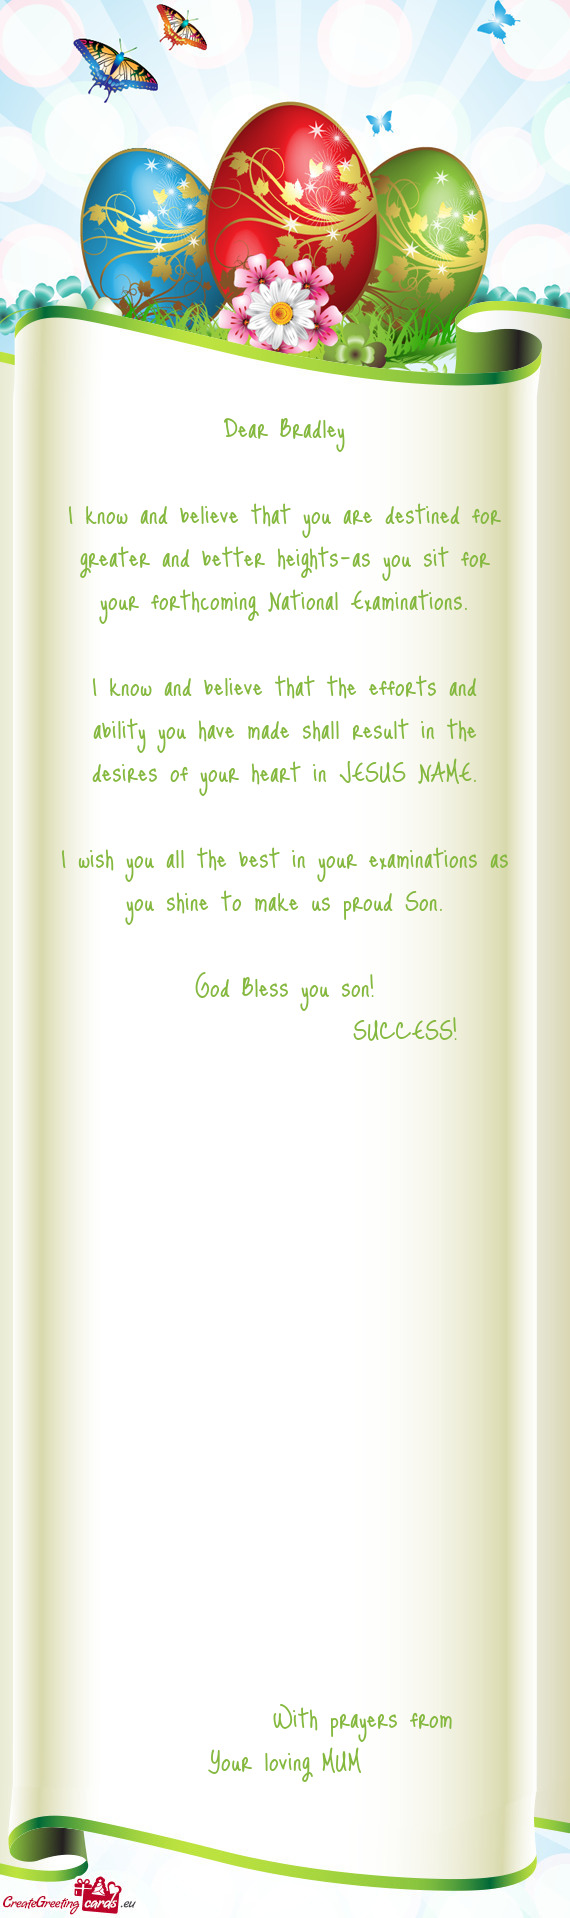 Dear Bradley
I know and believe that you are destined for
greater and better heights-as you sit for
your forthcoming National Examinations.
I know and believe that the efforts and
ability you have made shall result in the
desires of your heart in JESUS NAME.
I wish you all the best in your examinations as
you shine to make us proud Son.
God Bless you son!
SUCCESS!
With prayers from
Your loving MUM
CreateGreeting cards .eu